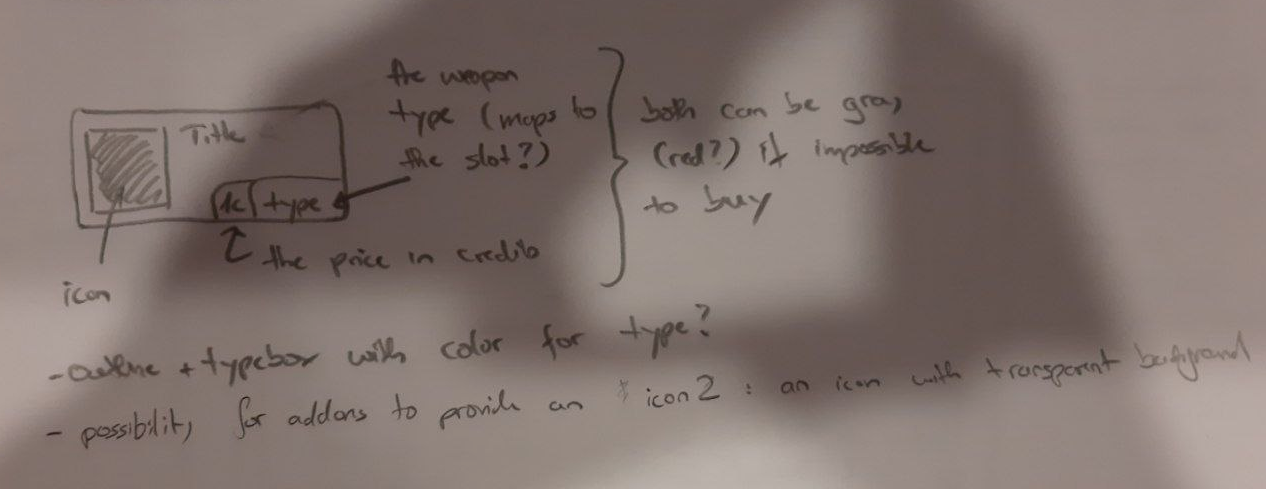 the weapon
type (maps to
the slot?)
both can be gray
(red?) if impossible
to buy
Title
1c
type
the price in credits
icon
- outline + typebox with color for type?
- possibility for addons to provide an icon2 : an icon with transparent background